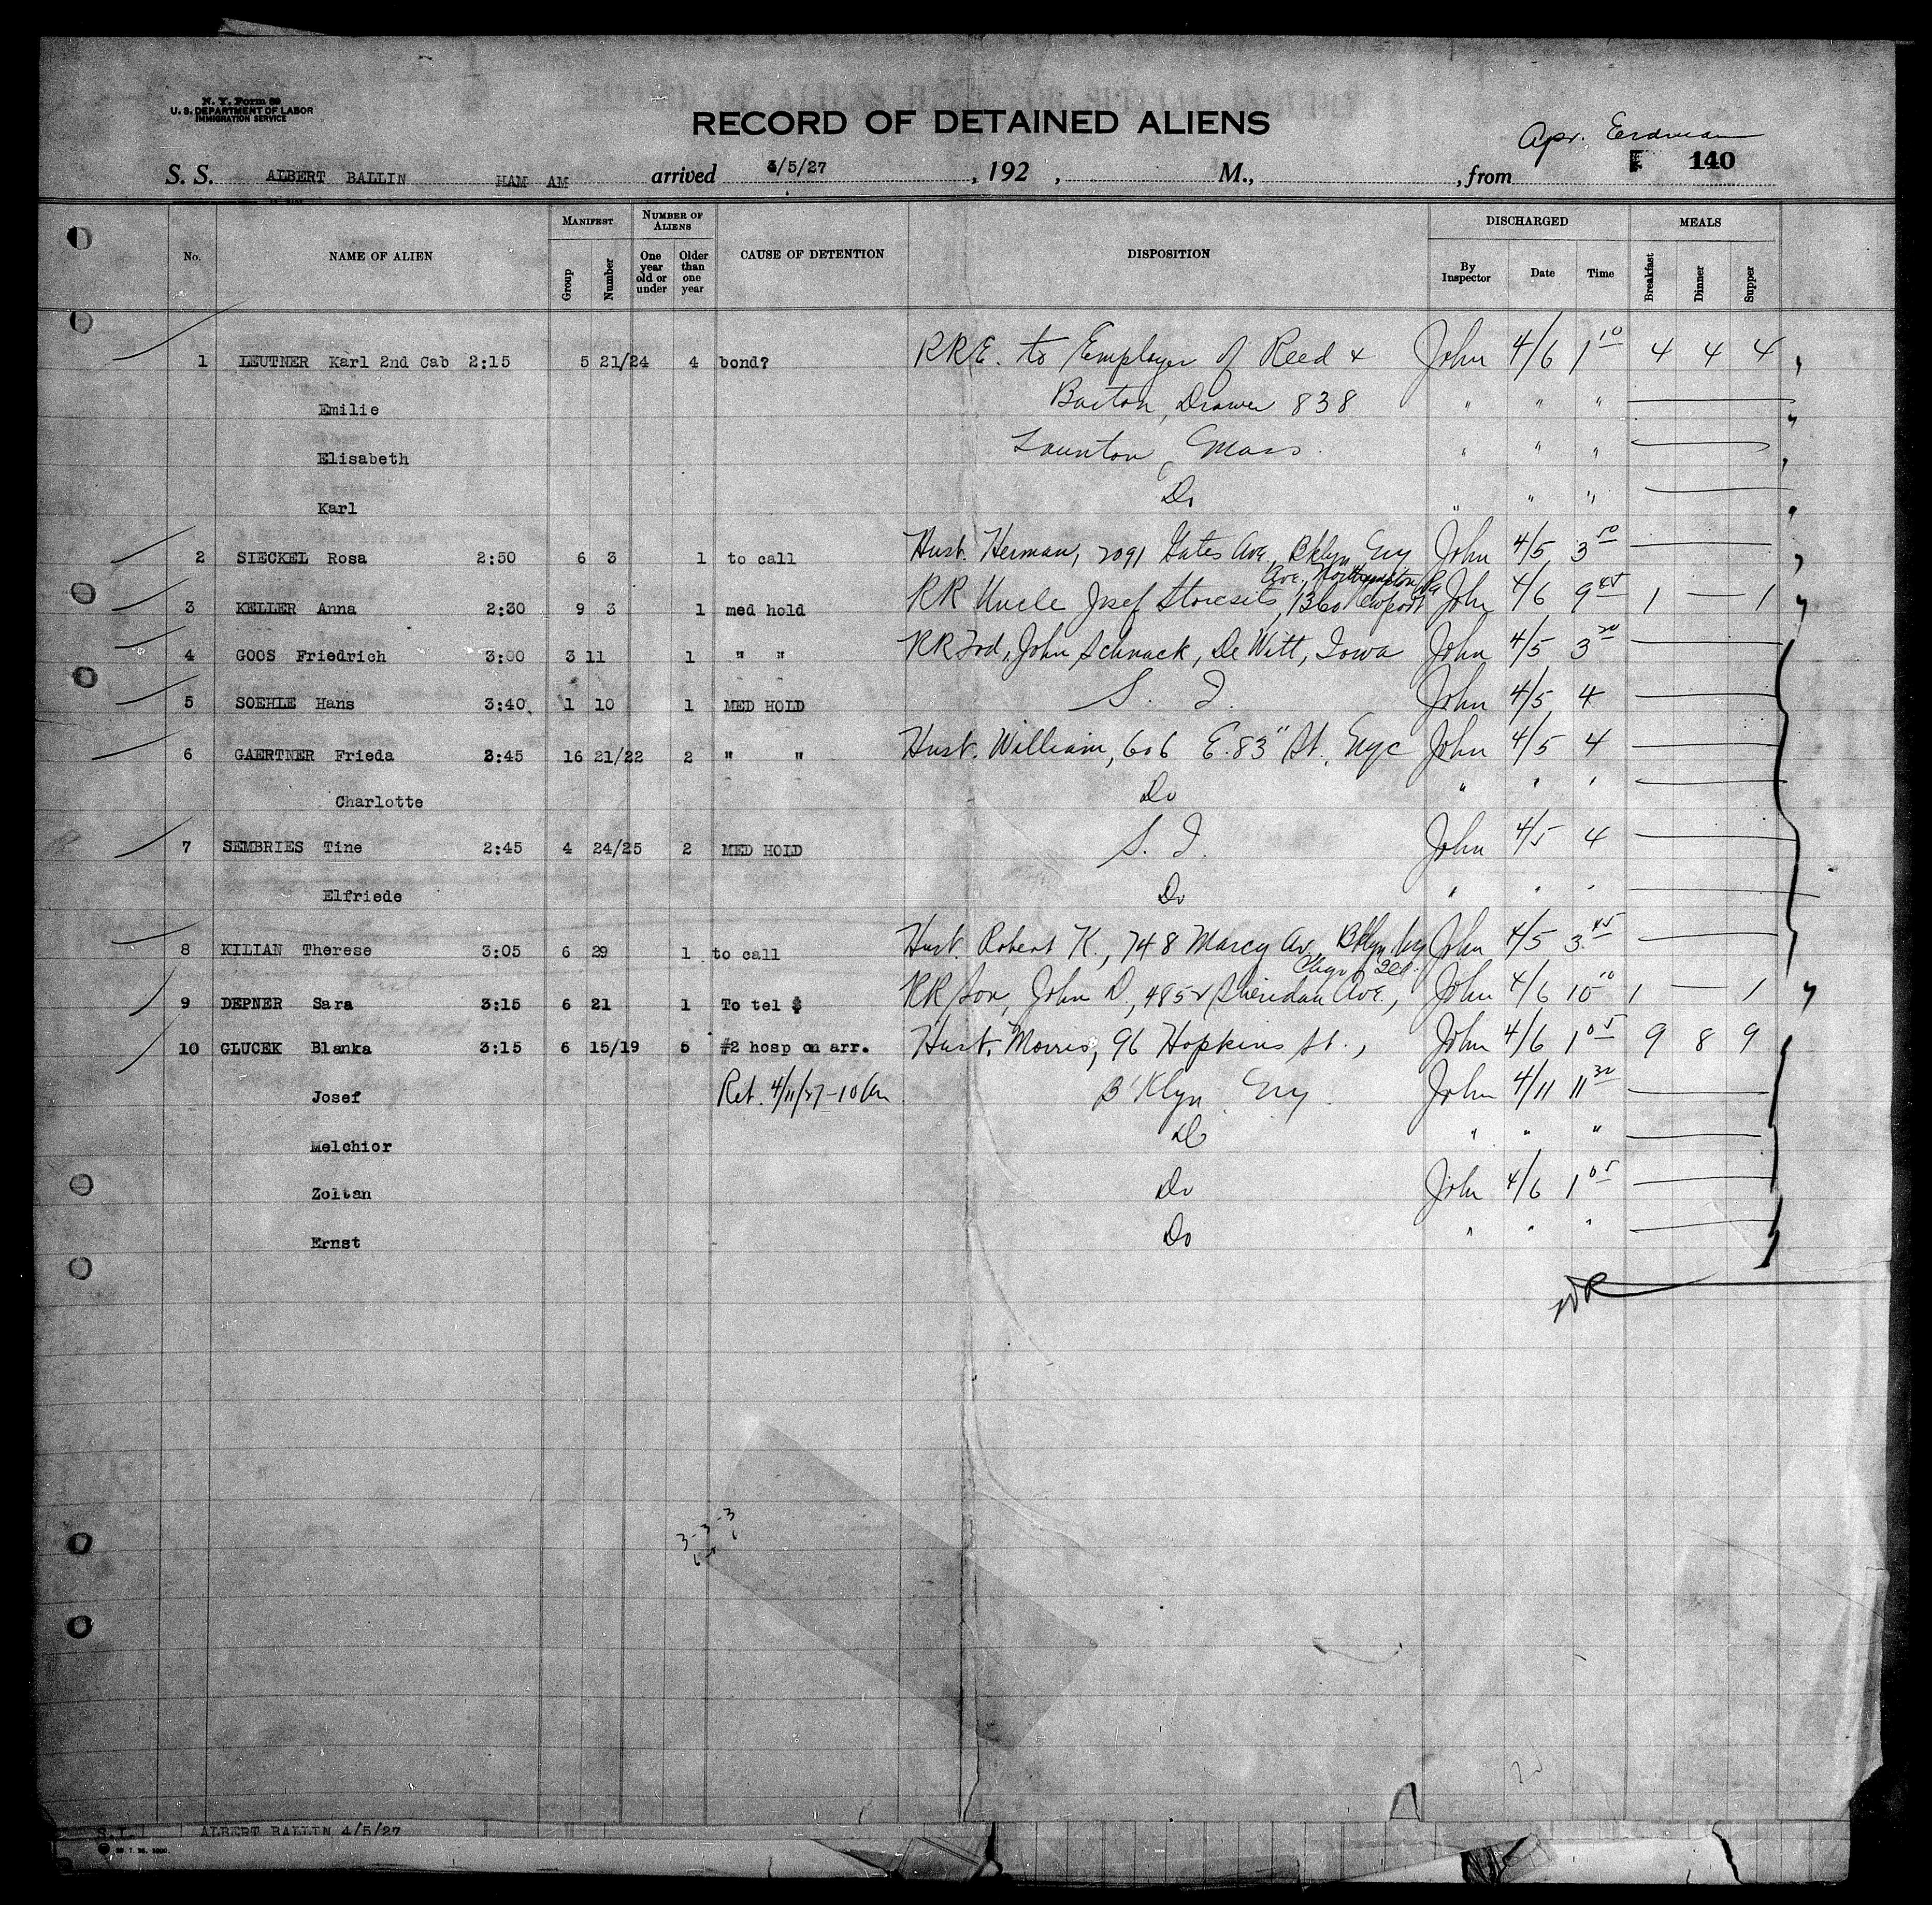 N. Y. Form 89
U. S. DEPARTMENT OF LABOR
IMMIGRATION SERVICE
RECORD OF DETAINED ALIENS
Apr. Erdman
140
S. S. ALBERT BALLIN HAM AM arrived 4/5/27, 192 , M., , from
No. NAME OF ALIEN MANIFEST Group Number NUMBER OF ALIENS One year old or under Older than one year CAUSE OF DETENTION DISPOSITION DISCHARGED By Inspector Date Time MEALS Breakfast Dinner Supper
1 LEUTNER Karl 2nd Cab 2:15 5 21/24 4 bond? RRE. to Employer of Reed & John 4/6 1 10 4 4 4
Emilie Barton, Drawer 838 " " "
Elisabeth Taunton, Mass. " " "
Karl Do " " "
2 SIECKEL Rosa 2:50 6 3 1 to call Husb. Herman, 2091 Gates Ave, Bklyn Ny John 4/5 3 50
Ave., Northampton Pa
3 KELLER Anna 2:30 9 3 1 med hold RR Uncle Josef Storesits, 1360 Newport John 4/6 9 45 1 — 1
4 GOOS Friedrich 3:00 3 11 1 " " RR Frd, John Schnack, De Witt, Iowa John 4/5 3 20
5 SOEHLE Hans 3:40 1 10 1 MED HOLD S. I. John 4/5 4
6 GAERTNER Frieda 2:45 16 21/22 2 " " Husb. William, 606 E. 83" St. Nyc John 4/5 4
Charlotte Do " " "
7 SEMBRIES Tine 2:45 4 24/25 2 MED HOLD S. I. John 4/5 4
Elfriede Do " " "
8 KILIAN Therese 3:05 6 29 1 to call Husb. Robert K., 748 Marcy Av, Bklyn Ny John 4/5 3 45
Chgo, Ill.
9 DEPNER Sara 3:15 6 21 1 To tel $ RR Son, John D., 4852 Sheridan Ave., John 4/6 10 10 1 — 1
10 GLUCEK Blanka 3:15 6 15/19 5 #2 hosp on arr. Husb. Morris, 96 Hopkins St., John 4/6 1 05 9 8 9
Josef Ret. 4/11/27-10 am B'klyn Ny. John 4/11 11 30
Melchior Do " " "
Zoltan Do John 4/6 1 05
Ernst Do " " "
3-3-3
S.I. ALBERT BALLIN 4/5/27